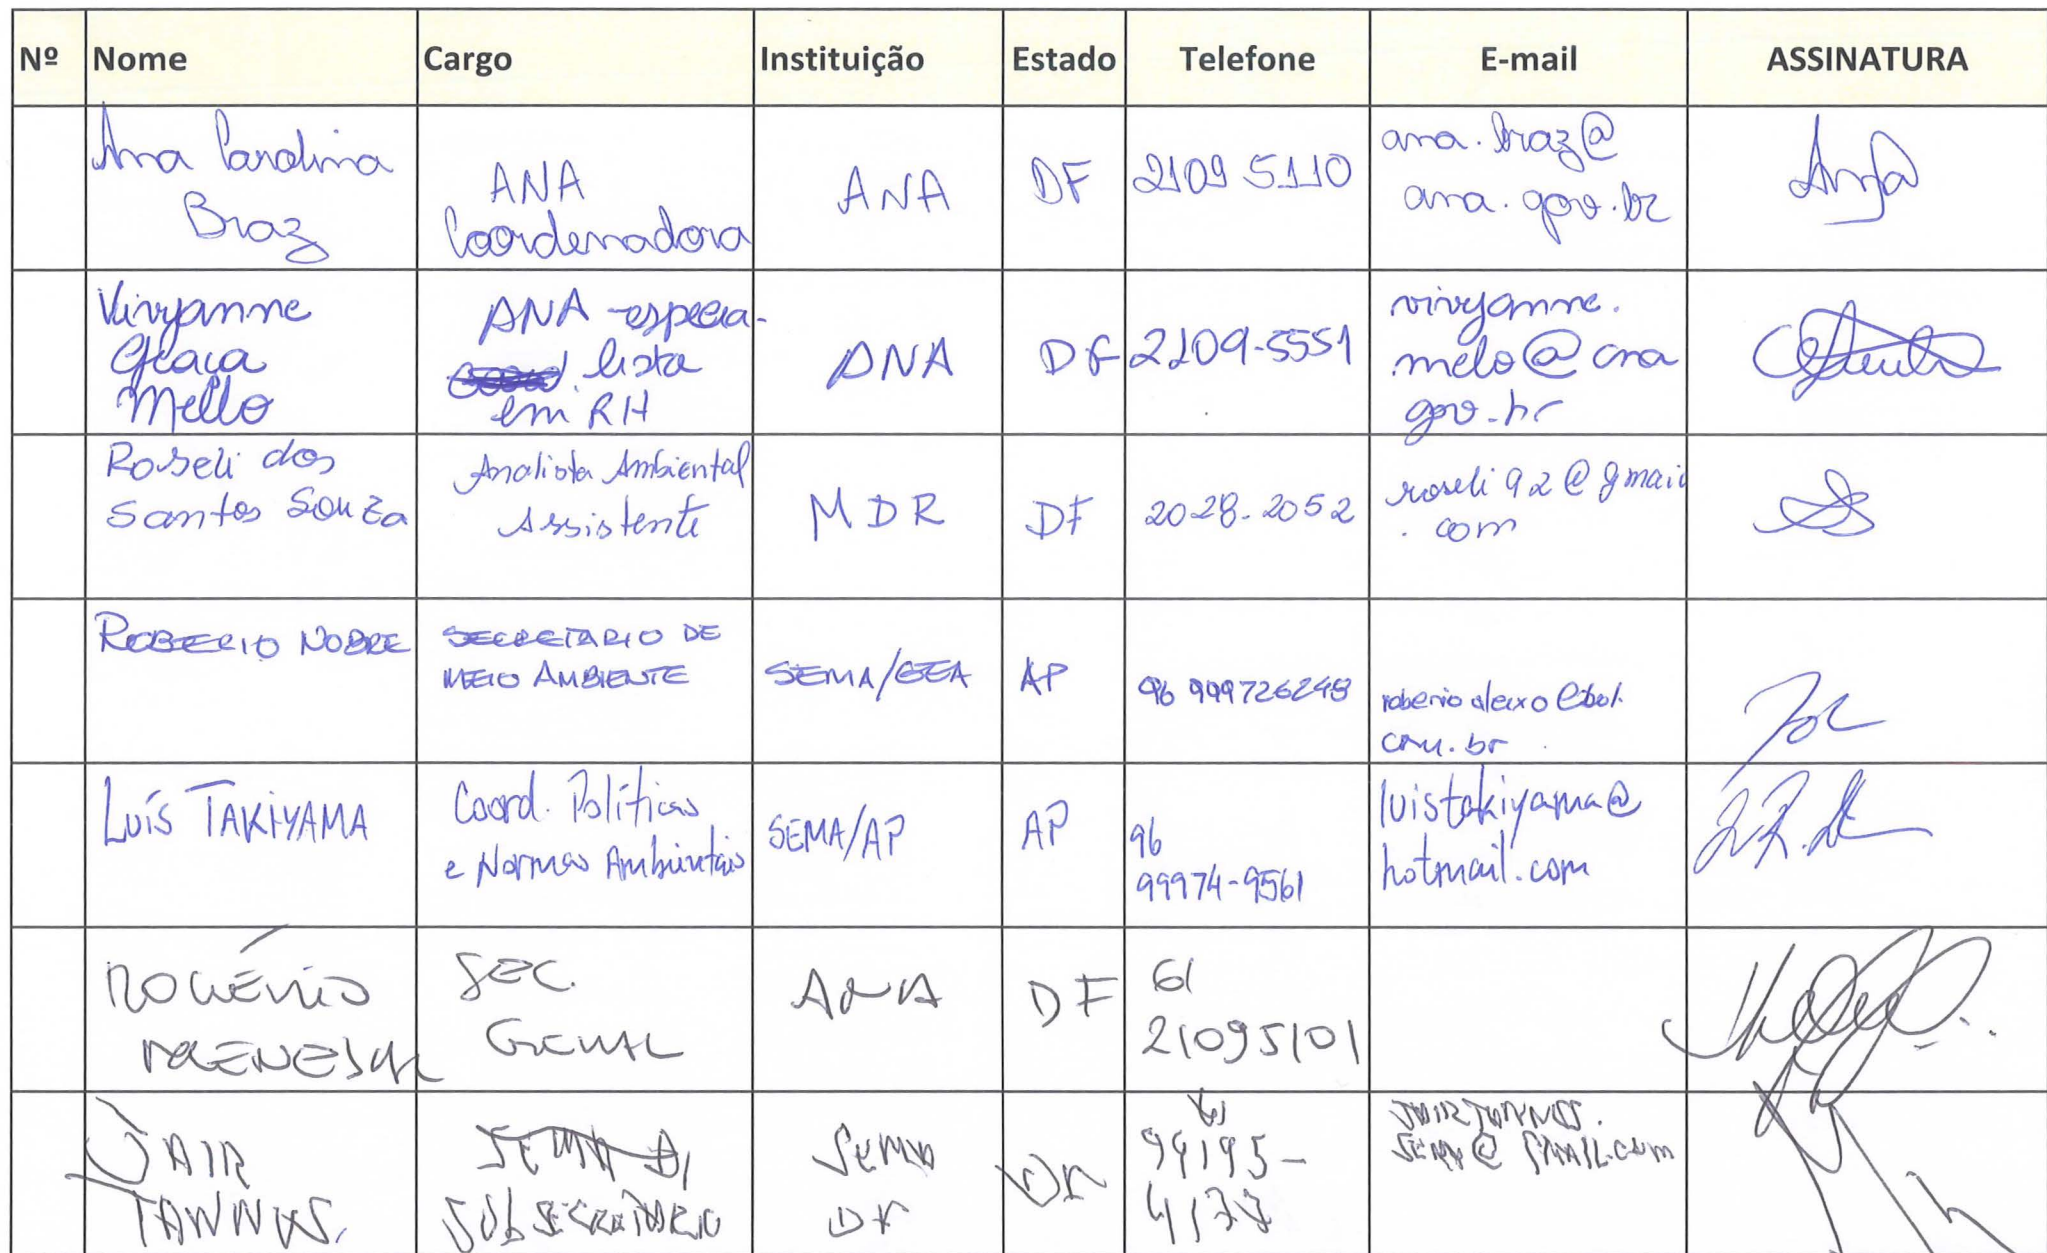 Nº Nome Cargo Instituição Estado Telefone E-mail ASSINATURA
Ana Carolina
Braz
ANA
Coordenadora
ANA
DF
2109 5110
ana.braz@
ana.gov.br
Vivyanne
Graça
Mello
ANA - especia-
lista
em RH
ANA
DF
2109-5551
vivyanne.
melo@ana
gov.br
Roseli dos
Santos Souza
Analista Ambiental
Assistente
MDR
DF
2028-2052
roseli92@gmail
.com
ROBERIO NOBRE
SECRETARIO DE
MEIO AMBIENTE
SEMA/GEA
AP
96 999726248
roberioaleixo@bol.
com.br
LUÍS TAKIYAMA
Coord. Políticas
e Normas Ambientais
SEMA/AP
AP
96
99974-9561
luistakiyama@
hotmail.com
ROGÉRIO
SEC.
GERAL
ANA
DF
61
21095101
JAIR
TANNUS.
SUBSECRETÁRIO
SEMA
DF
DF
61
99195-
4177
JAIRTANNUS.
SEMA@GMAIL.com